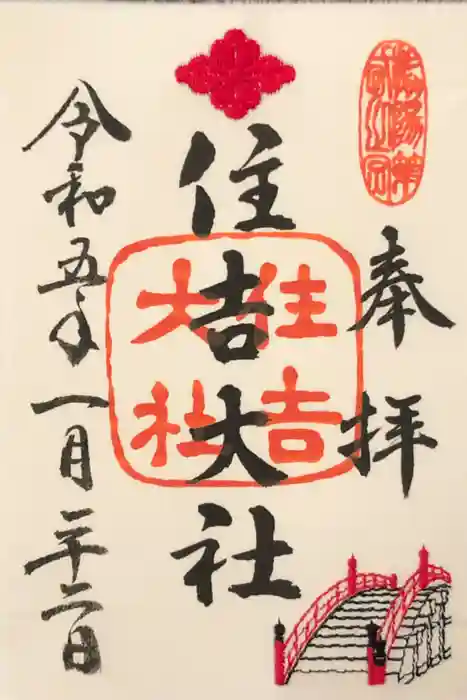 奉拝
住吉大社
住吉
大社
令和五年一月二十二日